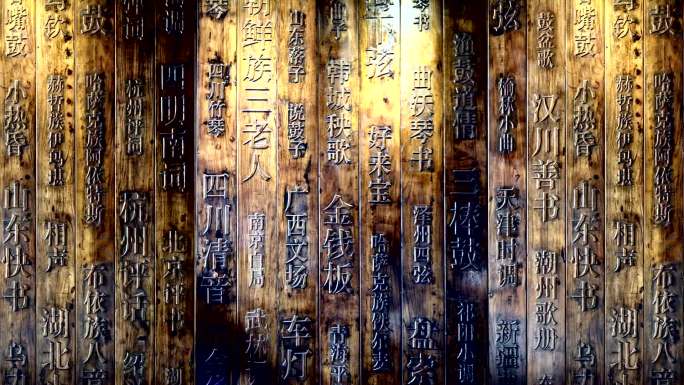 嘴鼓
小热昏
山东快书
乌
钦
赫哲族伊玛堪
相声
湖北
鼓
哈萨克族阿依特斯
布依族八音
词
杭州评词
杭州评话
绍
词
四明南词
北京评书
湖
琴
四川竹琴
四川清音
朝鲜族三老人
南京白局
武林
山东落子
说鼓子
广西文场
车灯
曲子
韩城秧歌
金钱板
青海平
弦
好来宝
哈萨克族铁尔麦
琴书
曲沃琴书
泽州四弦
盘索
渔鼓道情
三棒鼓
祁阳小调
弦
榆林小曲
天津时调
新疆
鼓盆歌
汉川善书
潮州歌册
嘴鼓
小热昏
山东快书
乌
钦
赫哲族伊玛堪
相声
湖北
鼓
哈萨克族阿依特斯
布依族八音